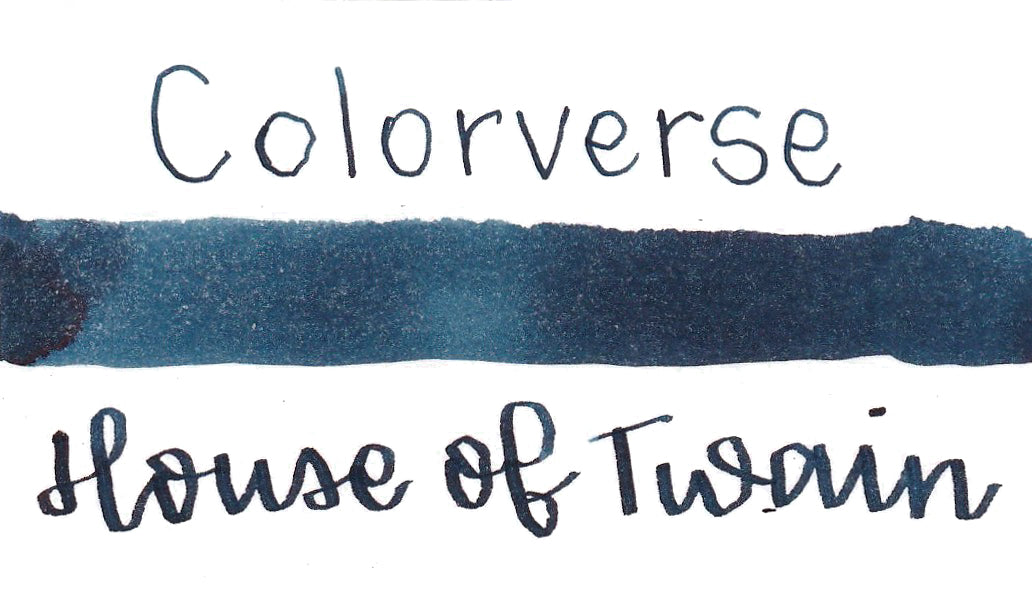 Colorverse
House of Twain